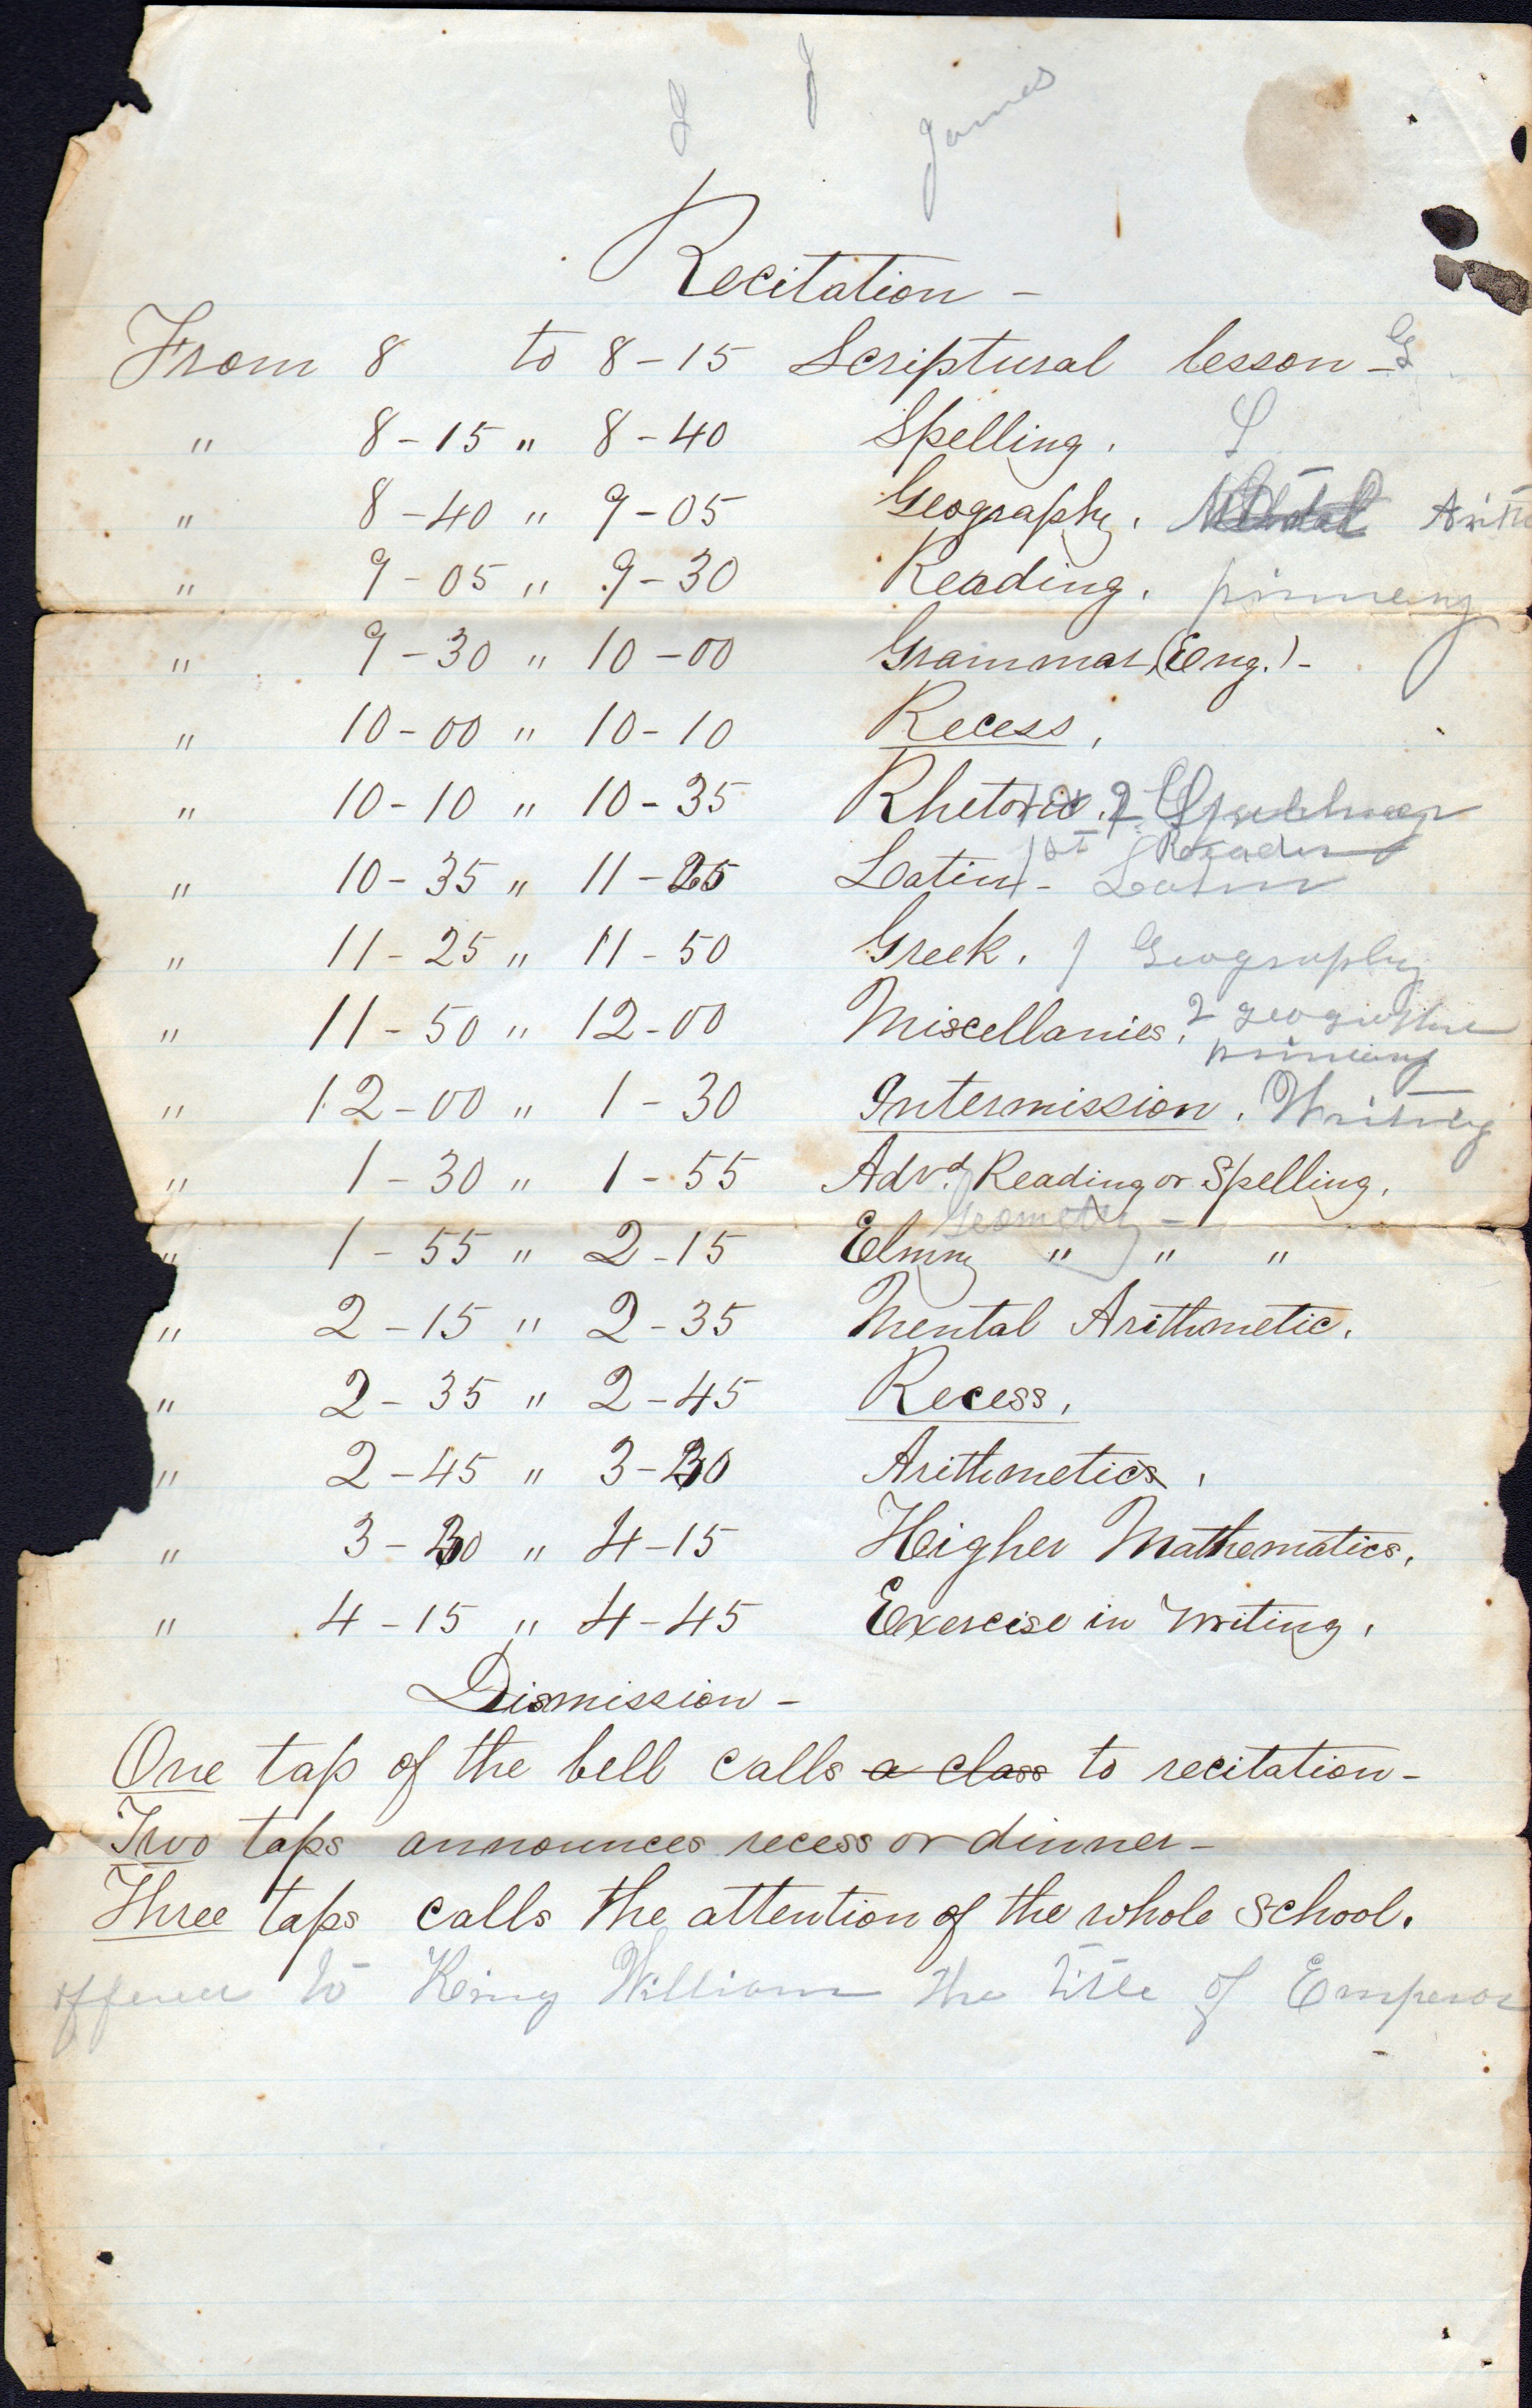 James
Recitation -
From 8 to 8-15 Scriptural lesson -
" 8-15 " 8-40 Spelling.
" 8-40 " 9-05 Geography. Mental Arith
" 9-05 " 9-30 Reading.
" 9-30 " 10-00 Grammar (Eng.) -
" 10-00 " 10-10 Recess,
" 10-10 " 10-35 Rhetoric.
1st Reader
" 10-35 " 11-25 Latin - Latin
" 11-25 " 11-50 Greek. Geography
" 11-50 " 12-00 Miscellanies. 2
" 12-00 " 1-30 Intermission. Writing
" 1-30 " 1-55 Advd. Reading or Spelling.
Geometry -
" 1-55 " 2-15 Elmny " " "
" 2-15 " 2-35 Mental Arithmetic.
" 2-35 " 2-45 Recess,
" 2-45 " 3-30 Arithmetics,
" 3-30 " 4-15 Higher Mathematics.
" 4-15 " 4-45 Exercise in writing.
Dismission -
One tap of the bell calls a class to recitation -
Two taps announces recess or dinner -
Three taps calls the attention of the whole school.
to King William the title of Emperor